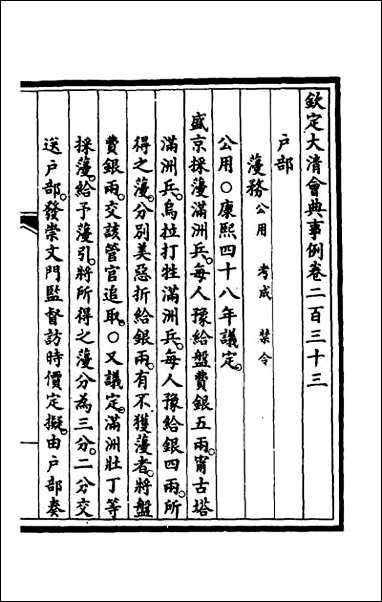 欽定大清會典事例卷二百三十三
户部
薓務公用 考成 禁令
公用○康熙四十八年議定。
盛京採薓滿洲兵。每人豫給盤費銀五兩。甯古塔
滿洲兵。烏拉打牲滿洲兵。每人豫給銀四兩。所
得之薓。分别美惡折給銀兩。有不獲薓者。將盤
費銀兩。交該管官追取。○又議定。滿洲壯丁等
採薓。給予薓引。將所得之薓分為三分。二分交
送户部。發崇文門監督訪時價定擬。由户部奏